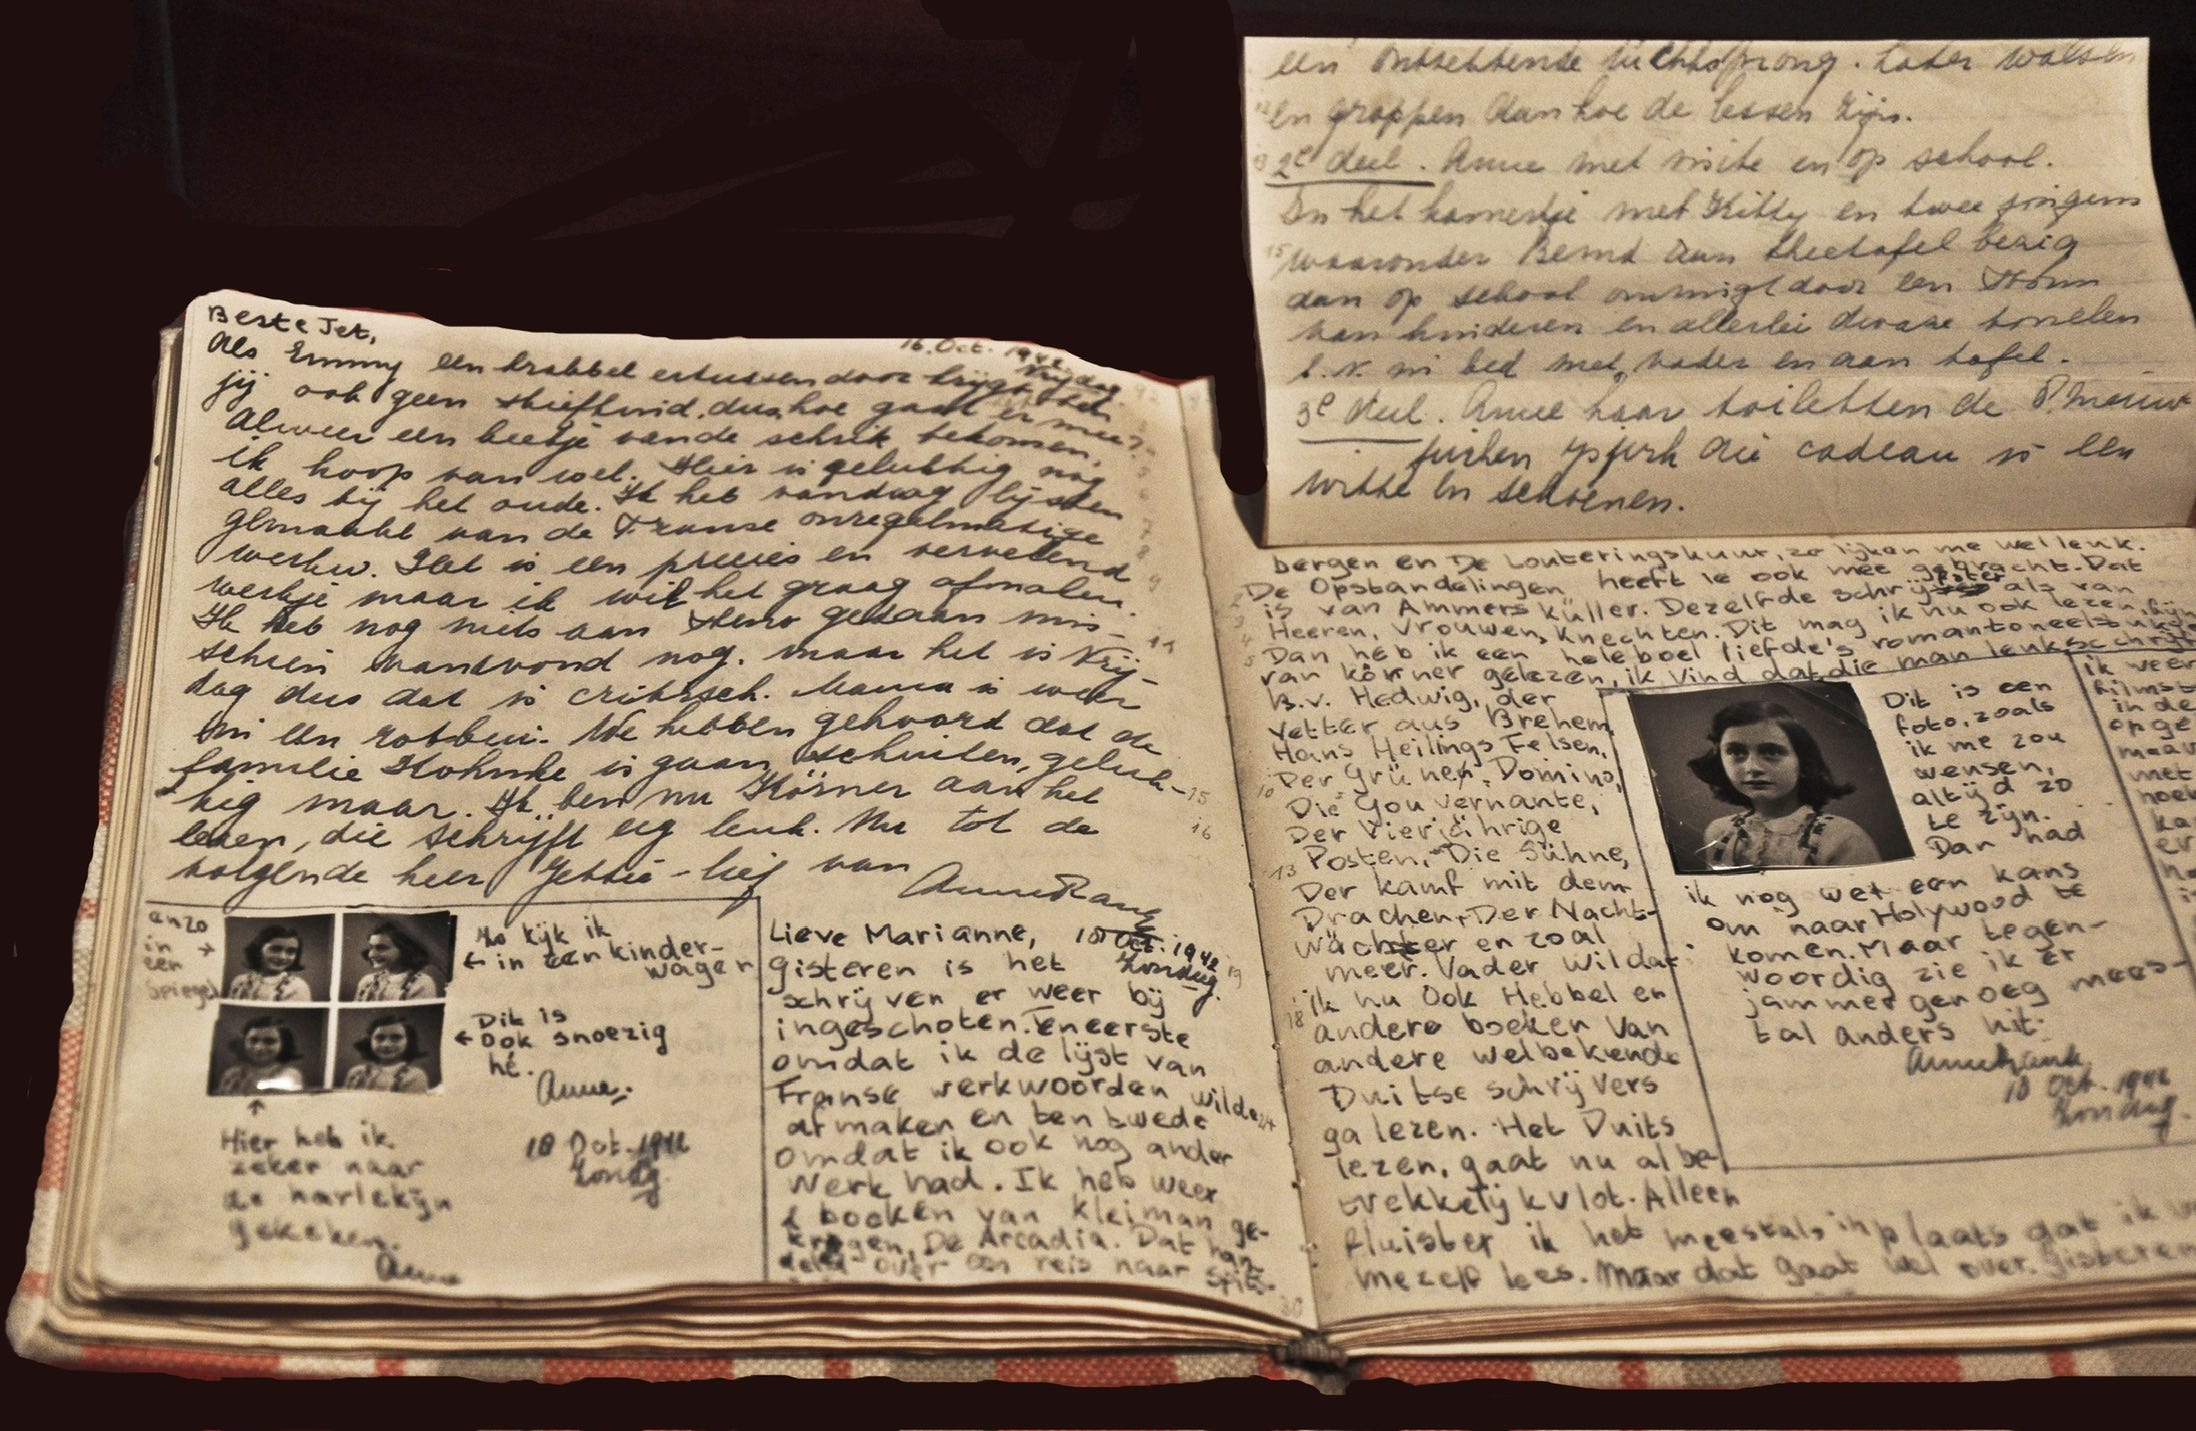 Beste Jet,
16. Oct. 1942
Vrijdag.
Als Emmy een krabbel ertussendoor krijgt ben
jij ook geen stiefkind. dus hoe gaat er mee?
Alweer een beetje van de schrik bekomen,
ik hoop van wel. Hier is gelukkig nog
alles bij het oude. Ik heb vandaag lijsten
gemaakt van de Franse onregelmatige
werkw. Het is een precies en vervelend
werkje maar ik wil het graag afmaken.
Ik heb nog niets aan steno gedaan mis-
schien vanavond nog. maar het is Vrij-
dag dus dat is critisch. Mama is weer
in een rotbui. We hebben gehoord dat de
familie is gaan schuilen, geluk-
kig maar. Ik ben nu Körner aan het
lezen, die schrijft erg leuk. Nu tot de
volgende keer Jettie-lief van
Anne Frank
enzo
in
een
spiegel
Zo kijk ik
in een kinder-
wagen
Dit is
ook snoezig
hé.
Anne.
Hier heb ik
zeker naar
de harlekijn
gekeken.
Anne
18 Oct. 1942
Zondag.
Lieve Marianne,
18 Oct. 1942
Zondag.
gisteren is het
schrijven er weer bij
ingeschoten. Eneerste
omdat ik de lijst van
Franse werkwoorden wilde
afmaken en ten twede
omdat ik ook nog ander
werk had. Ik heb weer
2 boeken van Kleiman ge-
kregen, De Arcadia. Dat han-
delt over een reis naar Spits-
een ontzettende luchtsprong. Later walsen
en grappen aan hoe de lessen zijn.
2e deel. Anne met visite en op school.
In het kamertje met Kitty en twee jongens
waaronder Bernd aan theetafel bezig
dan op school omringt door een
van kinderen en allerlei dwaze tonelen
b.v. in bed met vader en aan tafel.
3e deel. Anne haar toiletten de
die cadeau is een
witte en schoenen.
bergen en De Louteringskuur, zo lijken me wel leuk.
De Opstandelingen heeft ie ook mee gebracht. Dat
is van Ammers Küller. Dezelfde schrijfster als van
Heeren, Vrouwen, Knechten. Dit mag ik nu ook lezen, fijn
Dan heb ik een heleboel liefde's romantoneelstukjes
van körner gelezen, ik vind dat die man leuk schrijft
B.v. Hedwig, der
Vetter aus Brehem,
Hans Heilings Felsen,
Der Grünen Domino,
Die Gouvernante,
Der Vierjährige
Posten, Die Sühne,
Der kamf mit dem
Drachen, Der Nacht-
wächter en zoal
meer. Vader wil dat
ik nu ook Hebbel en
andere boeken van
andere welbekende
Duitse schrijvers
ga lezen. Het Duits
lezen, gaat nu al be-
trekkelijk vlot. Alleen
fluister ik het meestal, in plaats dat ik
mezelf lees. Maar dat gaat wel over. Gisteren
Dit is een
foto, zoals
ik me zou
wensen,
altijd zo
te zijn.
Dan had
ik nog wel een kans
om naar Holywood te
komen. Maar tegen-
woordig zie ik er
jammer genoeg mees-
tal anders uit.
Annefrank.
18 Oct. 1942
Zondag.
ik weer
in de